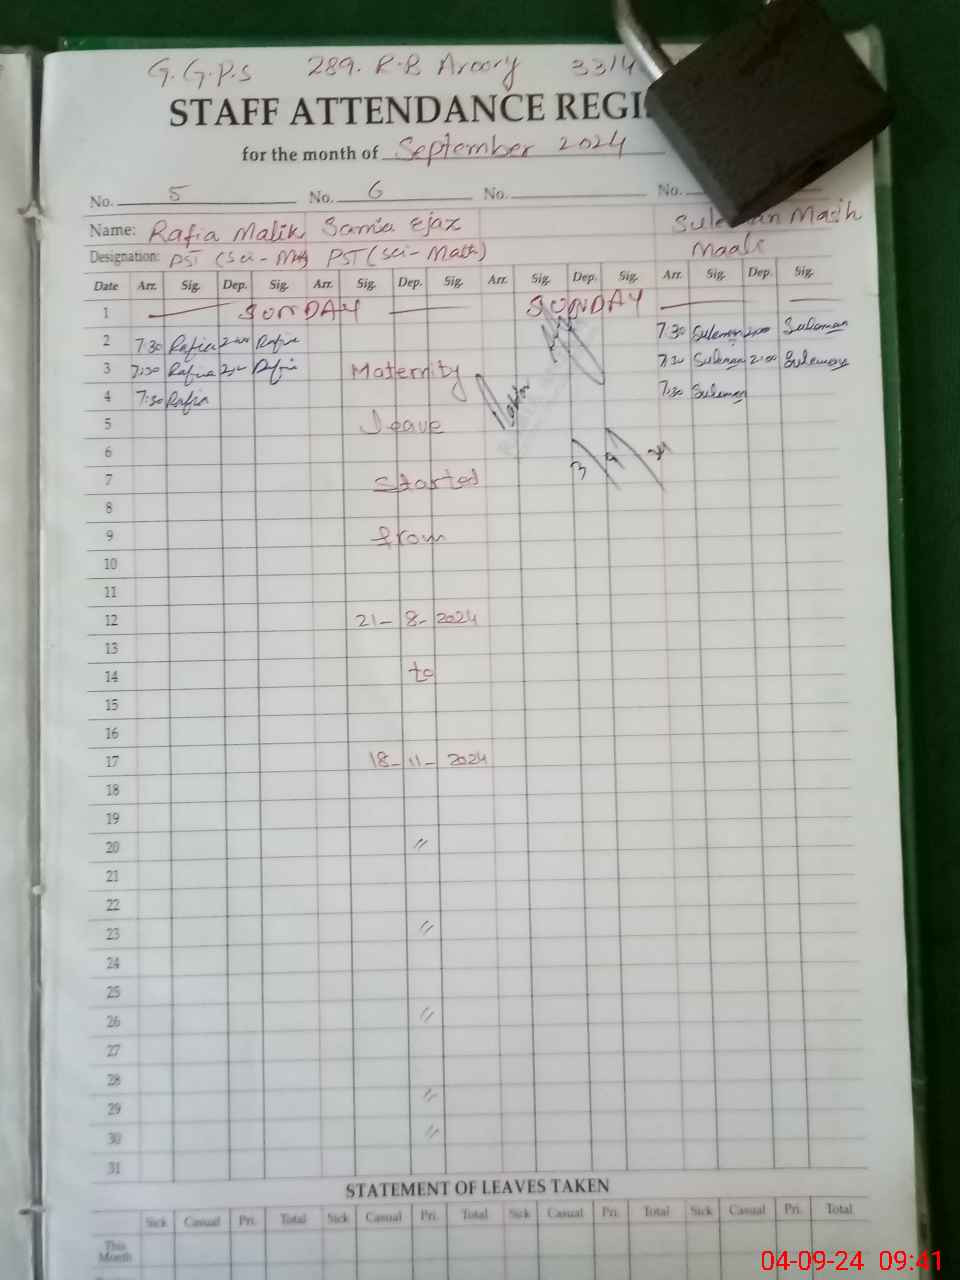 G.G.P.S 289. R-B Aroory 33/4
STAFF ATTENDANCE REGI
for the month of September 2024
No. 5 No. 6 No. No.
Name: Rafia Malik Samia Ejaz Suleman Masih
Designation: PST (Sci - Math) PST (Sci - Math) Maali
Date Arr. Sig. Dep. Sig. Arr. Sig. Dep. Sig. Arr. Sig. Dep. Sig. Arr. Sig. Dep. Sig.
1 SUNDAY SUNDAY
2 7:30 Rafia 2:00 Rafia 7:30 Suleman 2:00 Suleman
3 7:30 Rafia 2:00 Rafia Maternity 7:30 Suleman 2:00 Suleman
4 7:30 Rafia 7:30 Suleman
5 Leave
6 3/9/24
7 Started
8
9 from
10
11
12 21-8-2024
13
14 to
15
16
17 18-11-2024
18
19
20 "
21
22
23 "
24
25
26 "
27
28
29 "
30 "
31
STATEMENT OF LEAVES TAKEN
Sick Casual Pri. Total Sick Casual Pri. Total Sick Casual Pri. Total Sick Casual Pri. Total
This
Month
04-09-24 09:41